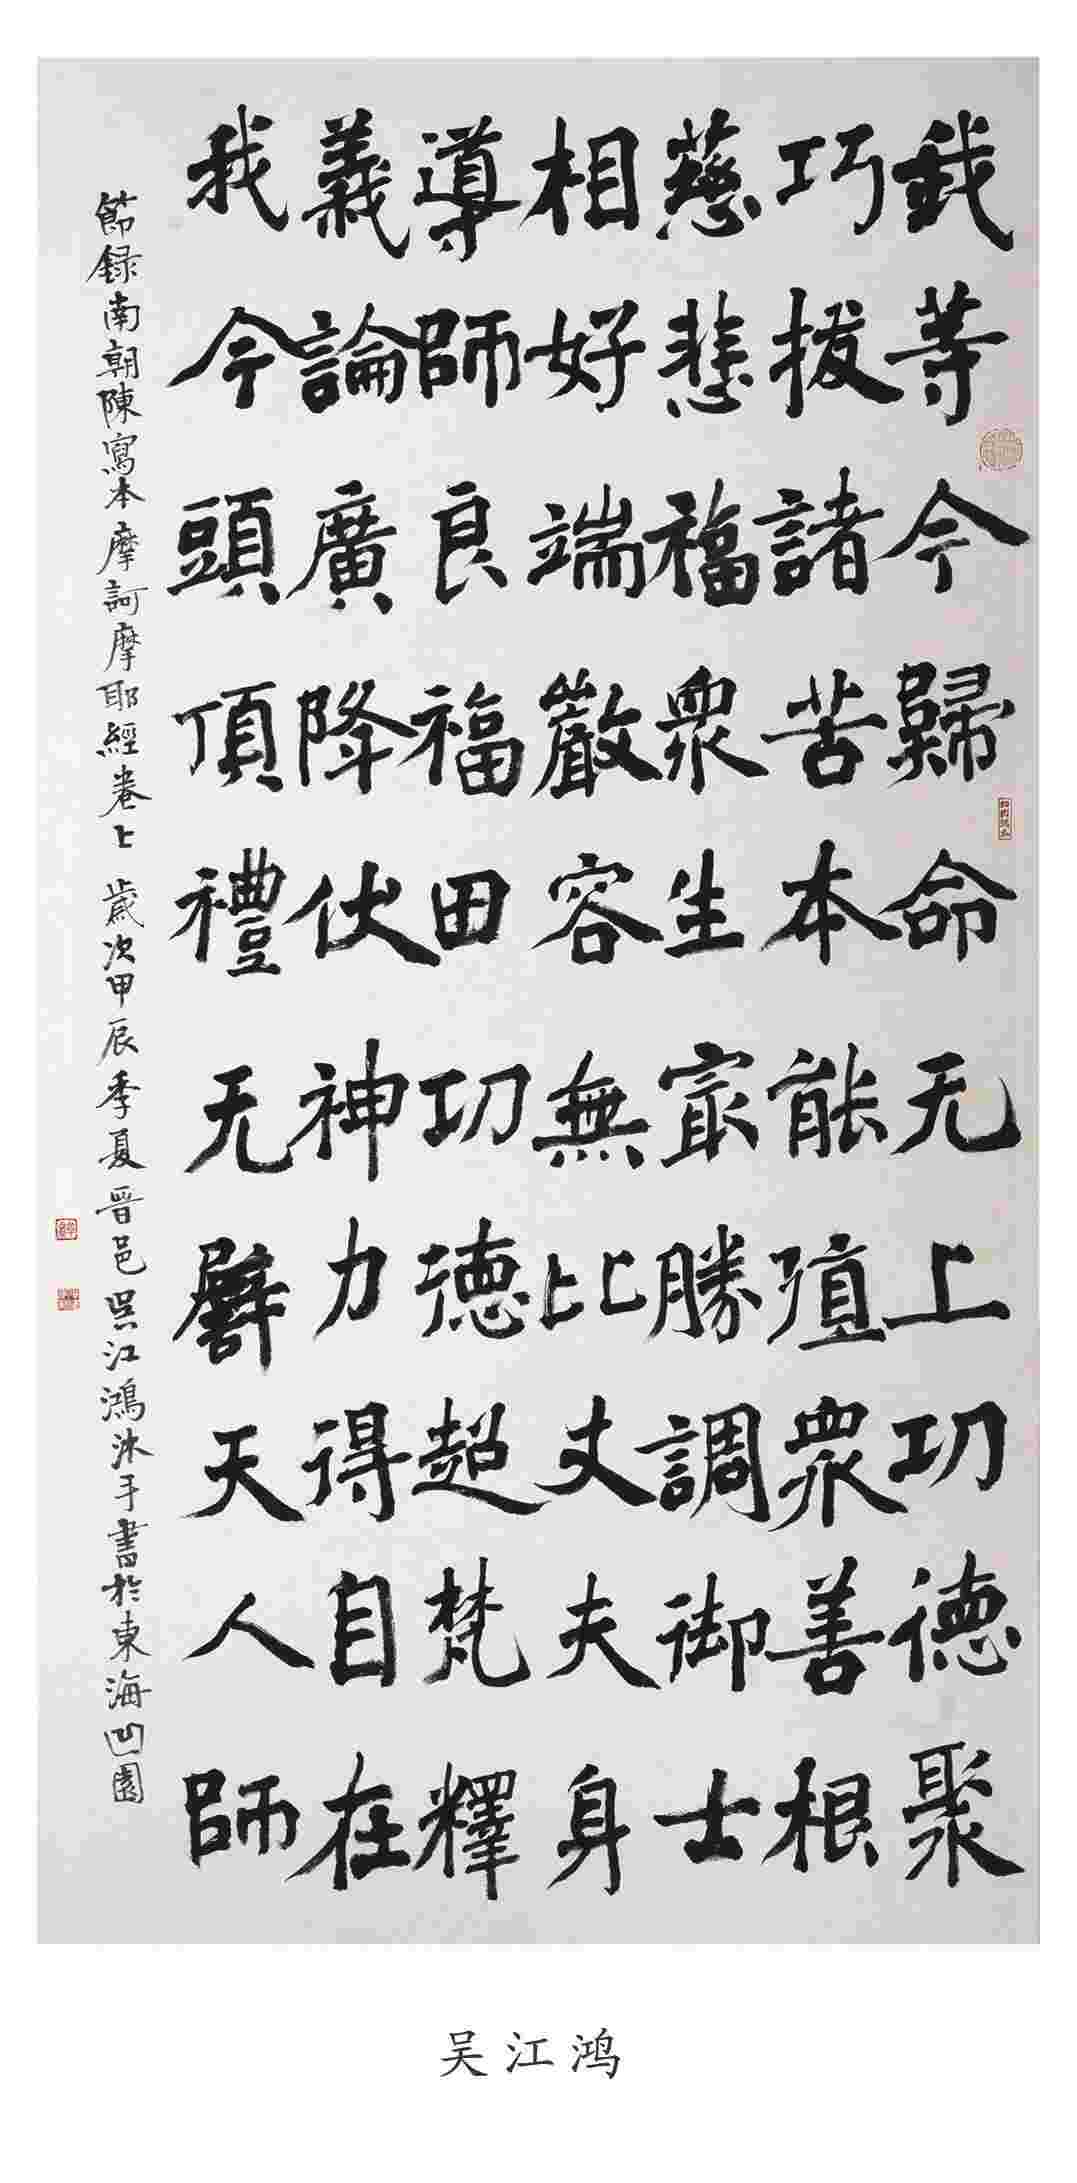 我等今歸命无上功德聚
巧拔諸苦本能殖衆善根
慈悲福衆生最勝調御士
相好端嚴容無比丈夫身
導師良福田功德超梵釋
義論廣降伏神力得自在
我今頭頂禮无譬天人師
節録南朝陳寫本摩訶摩耶經卷上 歲次甲辰季夏晉邑吴江鴻沐手書於東海凹園
吴江鸿